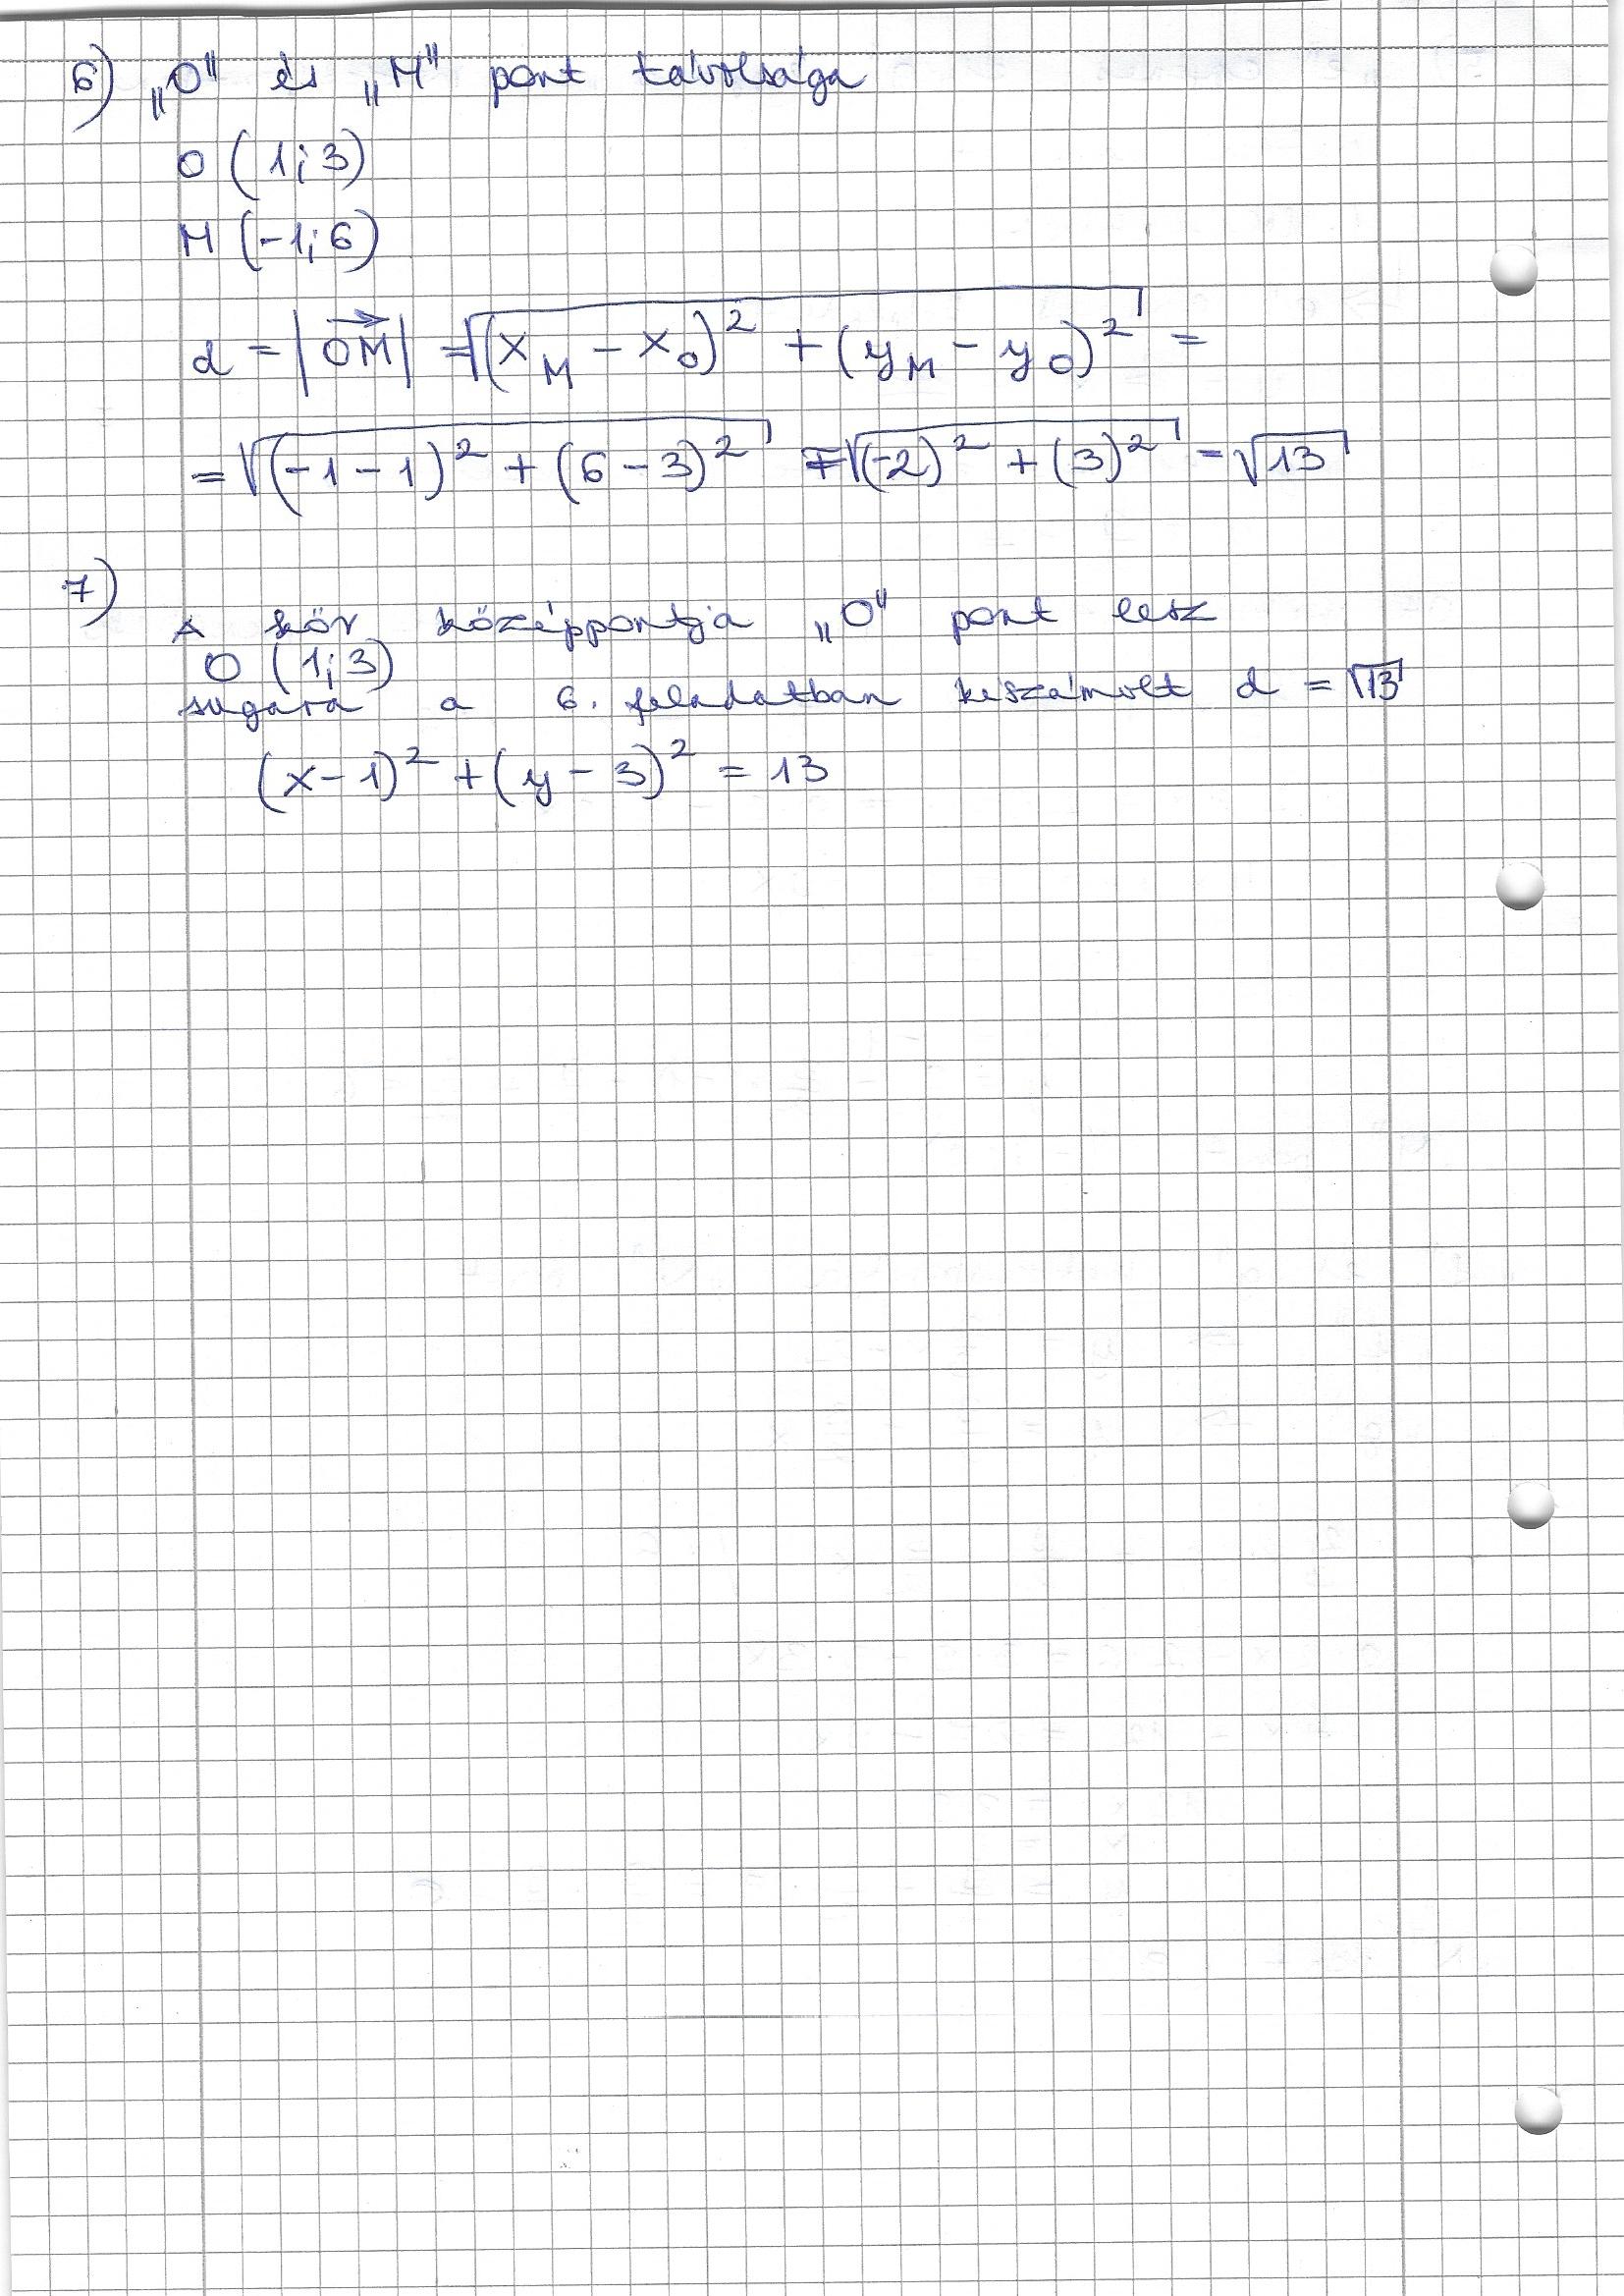 6) „O" és „M" pont távolsága
O (1;3)
M (-1;6)
d = |OM| = √(x_M - x_O)² + (y_M - y_O)² =
= √(-1-1)² + (6-3)² = √(-2)² + (3)² = √13
7)
A kör középpontja „O" pont lesz
O (1;3)
sugara a 6. feladatban kiszámolt d = √13
(x-1)² + (y-3)² = 13